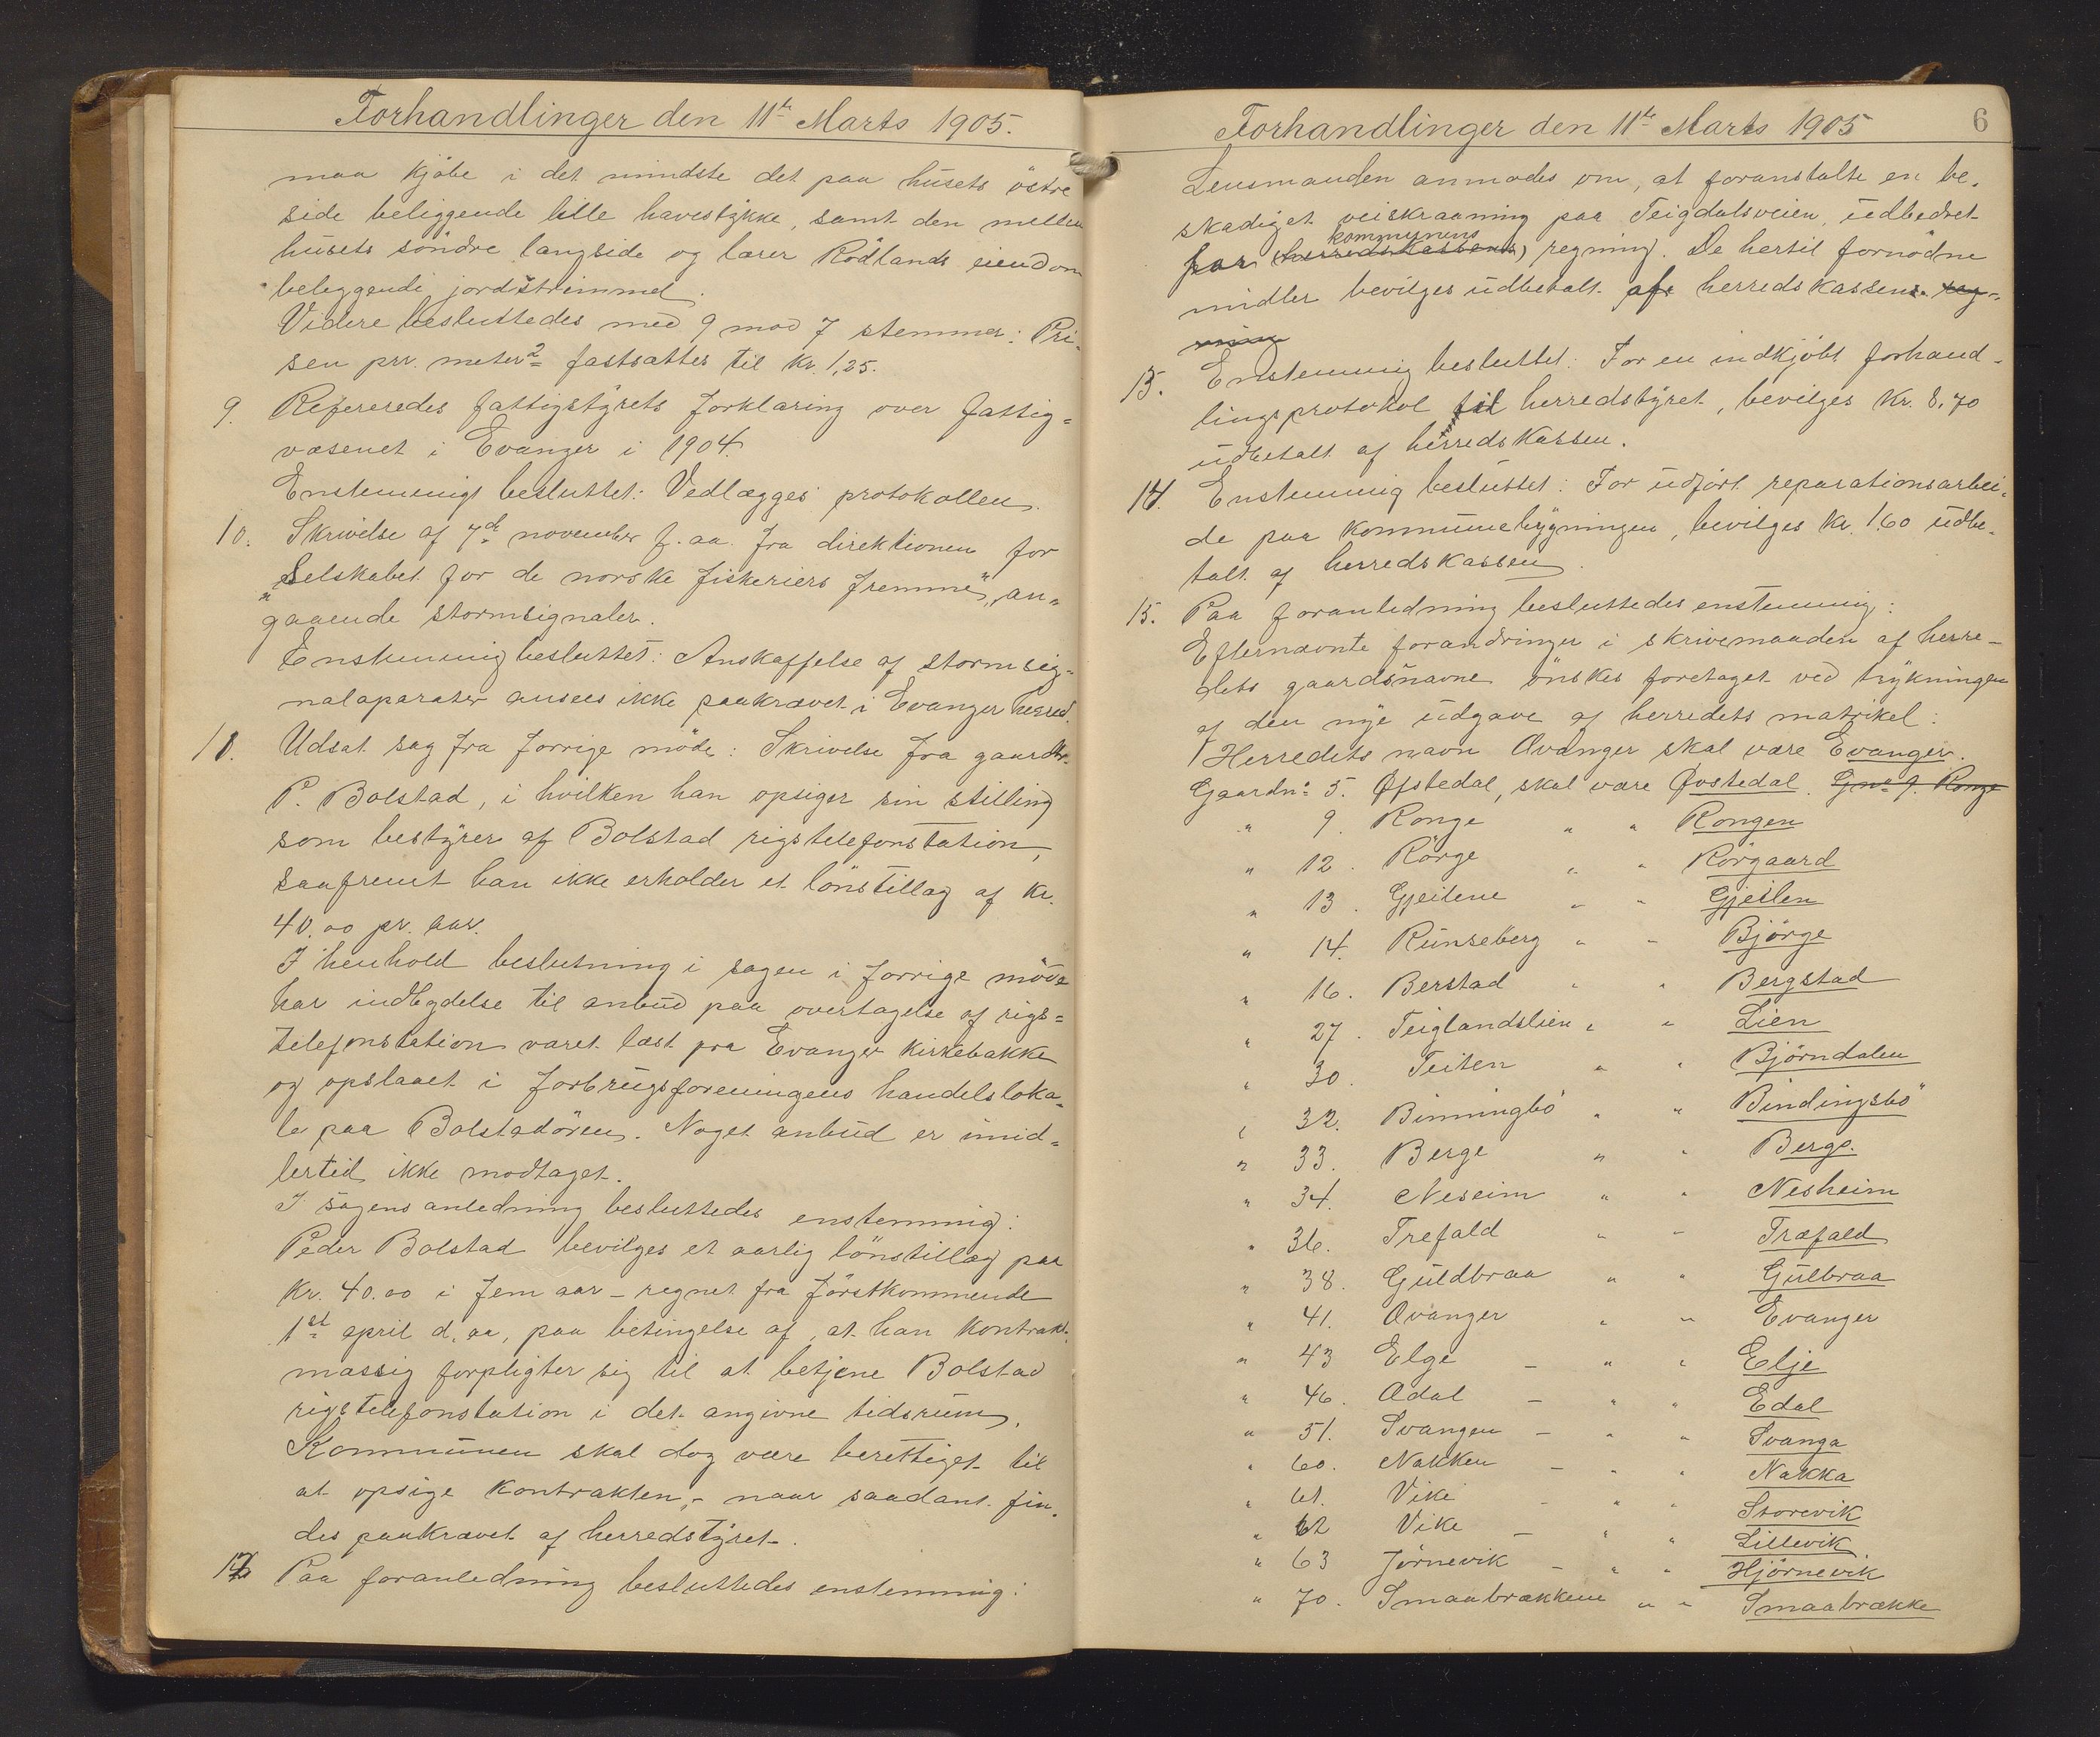 Forhandlinger den 11te Marts 1905.
maa kjöbe i det mindste det paa husets östre
side beliggende lille havestykke, samt den mellem
husets söndre langside og lærer Rödlands eiendom
beleggende jordstrimmel.
Videre besluttedes med 9 mod 7 stemmer: Pri-
sen prr. meter2 fastsættes til kr. 1,25.
9. Refereredes fattigstyrets forklaring over fattig=
væsenet i Evanger i 1904.
Enstemmigt besluttet: Vedlægges protokollen.
10. Skrivelse af 7de november f. aa. fra direktionen for
"Selskabet for de norske fiskeriers fremme", an=
gaaende stormsignaler.
Enstemmig besluttet: Anskaffelse af stormsig=
nalaparater ansees ikke paakrævet i Evanger herred.
11. Udsat sag fra forrige möde: Skrivelse fra gaardbr.
P. Bolstad, i hvilken han opsiger sin stilling
som bestyrer af Bolstad rigstelefonstation,
saafremt han ikke erholder et lönstillæg af kr.
40.00 pr. aar.
I henhold beslutning i sagen i forrige möde
har indbydelse til anbud paa overtagelse af rigs=
telefonstation været læst pra Evanger kirkebakke
og opslaaet i forbrugsforeningens handelsloka=
le paa Bolstadören. Noget anbud er imid=
lertid ikke modtaget.
I sagens anledning besluttedes enstemmig:
Peder Bolstad bevilges et aarlig lönstillæg paa
Kr. 40.00 i fem aar - regnet fra förstkommende
1st april d. aa, paa betingelse af, at han kontrakt-
mæssig forpligter sig til at betjene Bolstad
rigstelefonstation i det angivne tidsrum.
Kommunen skal dog være berettiget til
at opsige kontrakten, - naar saadant fin-
des paakrævet af herredstyret.
12 Paa foranledning besluttedes enstemmig:
Forhandlinger den 11te Marts 1905
6
Lensmanden anmodes om, at foranstalte en be-
skadiget veiskraaning paa Teigdalsveien, udbedret
kommunens
for (herredskassens) regning. De hertil fornödne
midler bevilges udbetalt af herredskassens reg-
ning
13. Enstemmig besluttet: For en indkjöbt forhand-
lingsprotokol til herredstyret, bevilges Kr. 8,70
udbetalt af herredskassen.
14. Enstemmig besluttet: For udfört reparationsarbei-
de paa kommunebygningen, bevilges kr. 1.60 udbe-
talt af herredskassen.
15. Paa foranledning besluttedes enstemmig:
Efternævnte forandringer i skrivemaaden af herre-
dets gaardsnavne önskes foretaget ved trykningen
af den nye udgave af herredets matrikel:
Herredets navn Ovanger skal være Evanger.
Gaardn: 5. Øfstedal, skal være Øvstedal. Gno 9. Ronge
" 9. Ronge " " Rongen
" 12. Rörge " " Rörgaard
" 13. Gjeilene " " Gjeilen
" 14. Runseberg " " Björge
" 16. Berstad " " Bergstad
" 27. Teiglandslien " " Lien
" 30. Teiten " " Björndalen
" 32. Binningbö " " Bindingsbö
" 33. Berge " " Berge.
" 34. Neseim " " Nesheim
" 36. Trefald " " Træfald
" 38. Guldbraa " " Gulbraa
" 41. Ovanger " " Evanger
" 43 Elge - " " Elje
" 46. Odal - " " Edal
" 51. Svangen - " " Svanga
" 60. Nakken - " " Nakka
" 61. Vike - " " Storevik
" 62 Vike - " " Lillevik
" 63 Jörnevik - " " Hjörnevik
" 70. Smaabrækkene " " Smaabrække